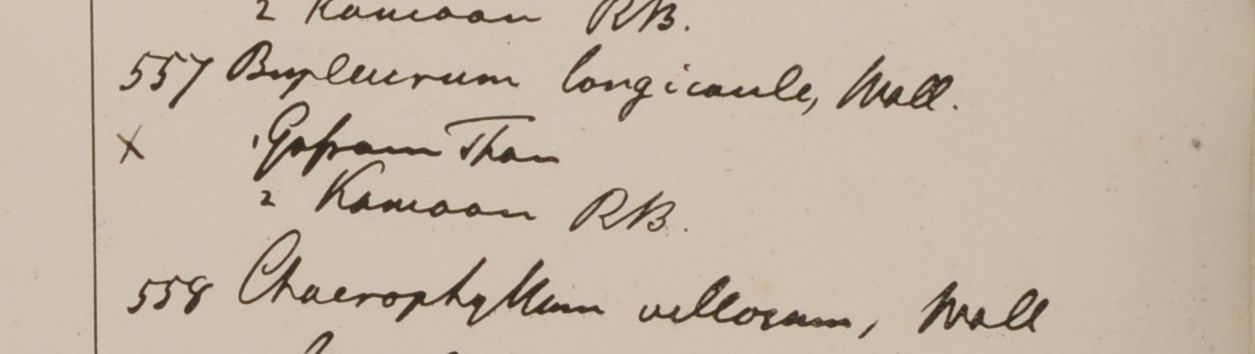 2 Kamoon RB.
557 Bupleurum longicaule, Wall.
x 1 Gossam Than
2 Kamoon RB.
558 Chaerophyllum villosum, Wall